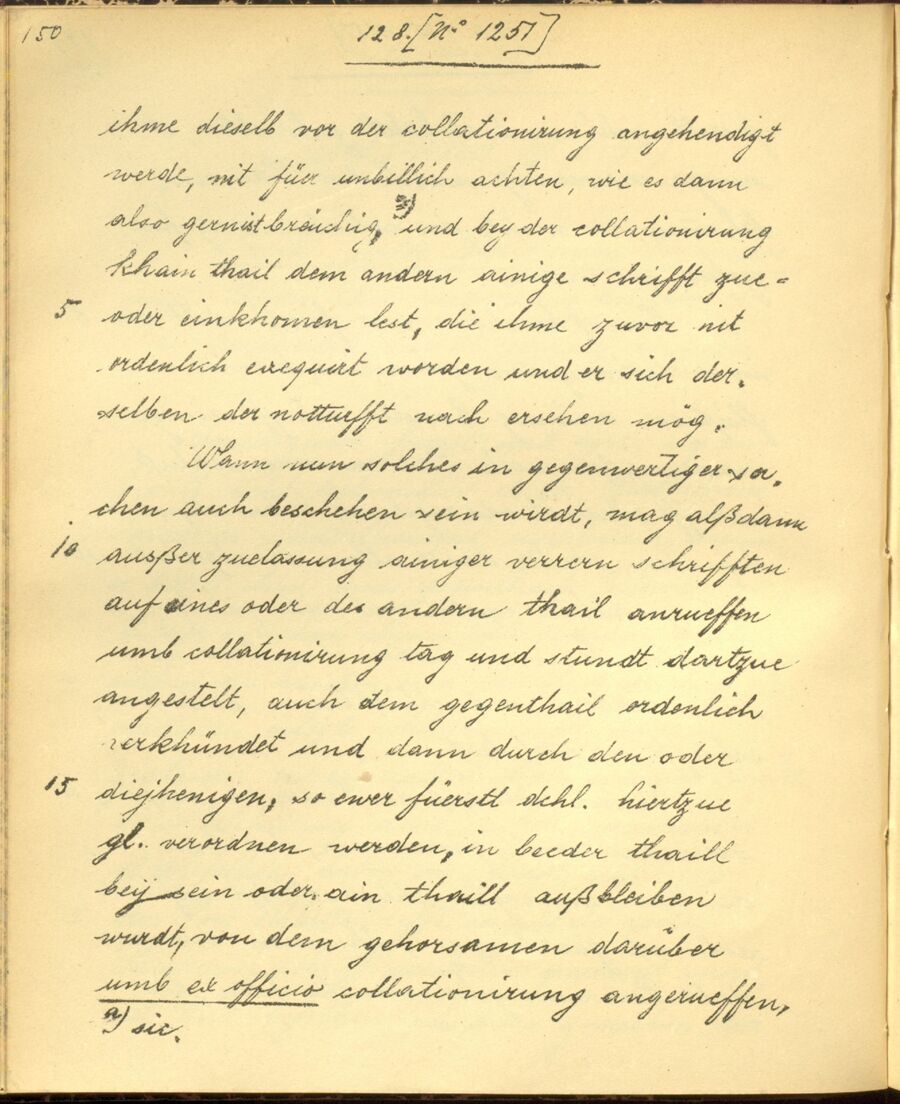 150
128. [No 1251]
ihme dieselb vor der collationirung angehendigt
werde, nit füer unbillich achten, wie es dann
also gernistbräuchig, a) und bey der collationirung
khain thail dem andern ainige schrifft zue-
5 oder einkhomen lest, die ihme zuvor nit
ordenlich exequirt worden und er sich der-
selben der notturfft nach ersehen mög.
Wann nun solches in gegenwertiger sa-
chen auch beschehen sein wirdt, mag alßdann
10 ausßer zuelassung ainiger verrern schrifften
auf eines oder des andern thail anrueffen
umb collationirung tag und stundt dartzue
angestelt, auch dem gegenthail ordenlich
verkhündet und dann durch den oder
15 diejhenigen, so ewer füerstl dchl. hiertzue
gl. verordnen werden, in beeder thaill
beij sein oder, ain thaill außbleiben
wurdt, von dem gehorsamen darüber
umb ex officio collationirung angerueffen,
a) sic.